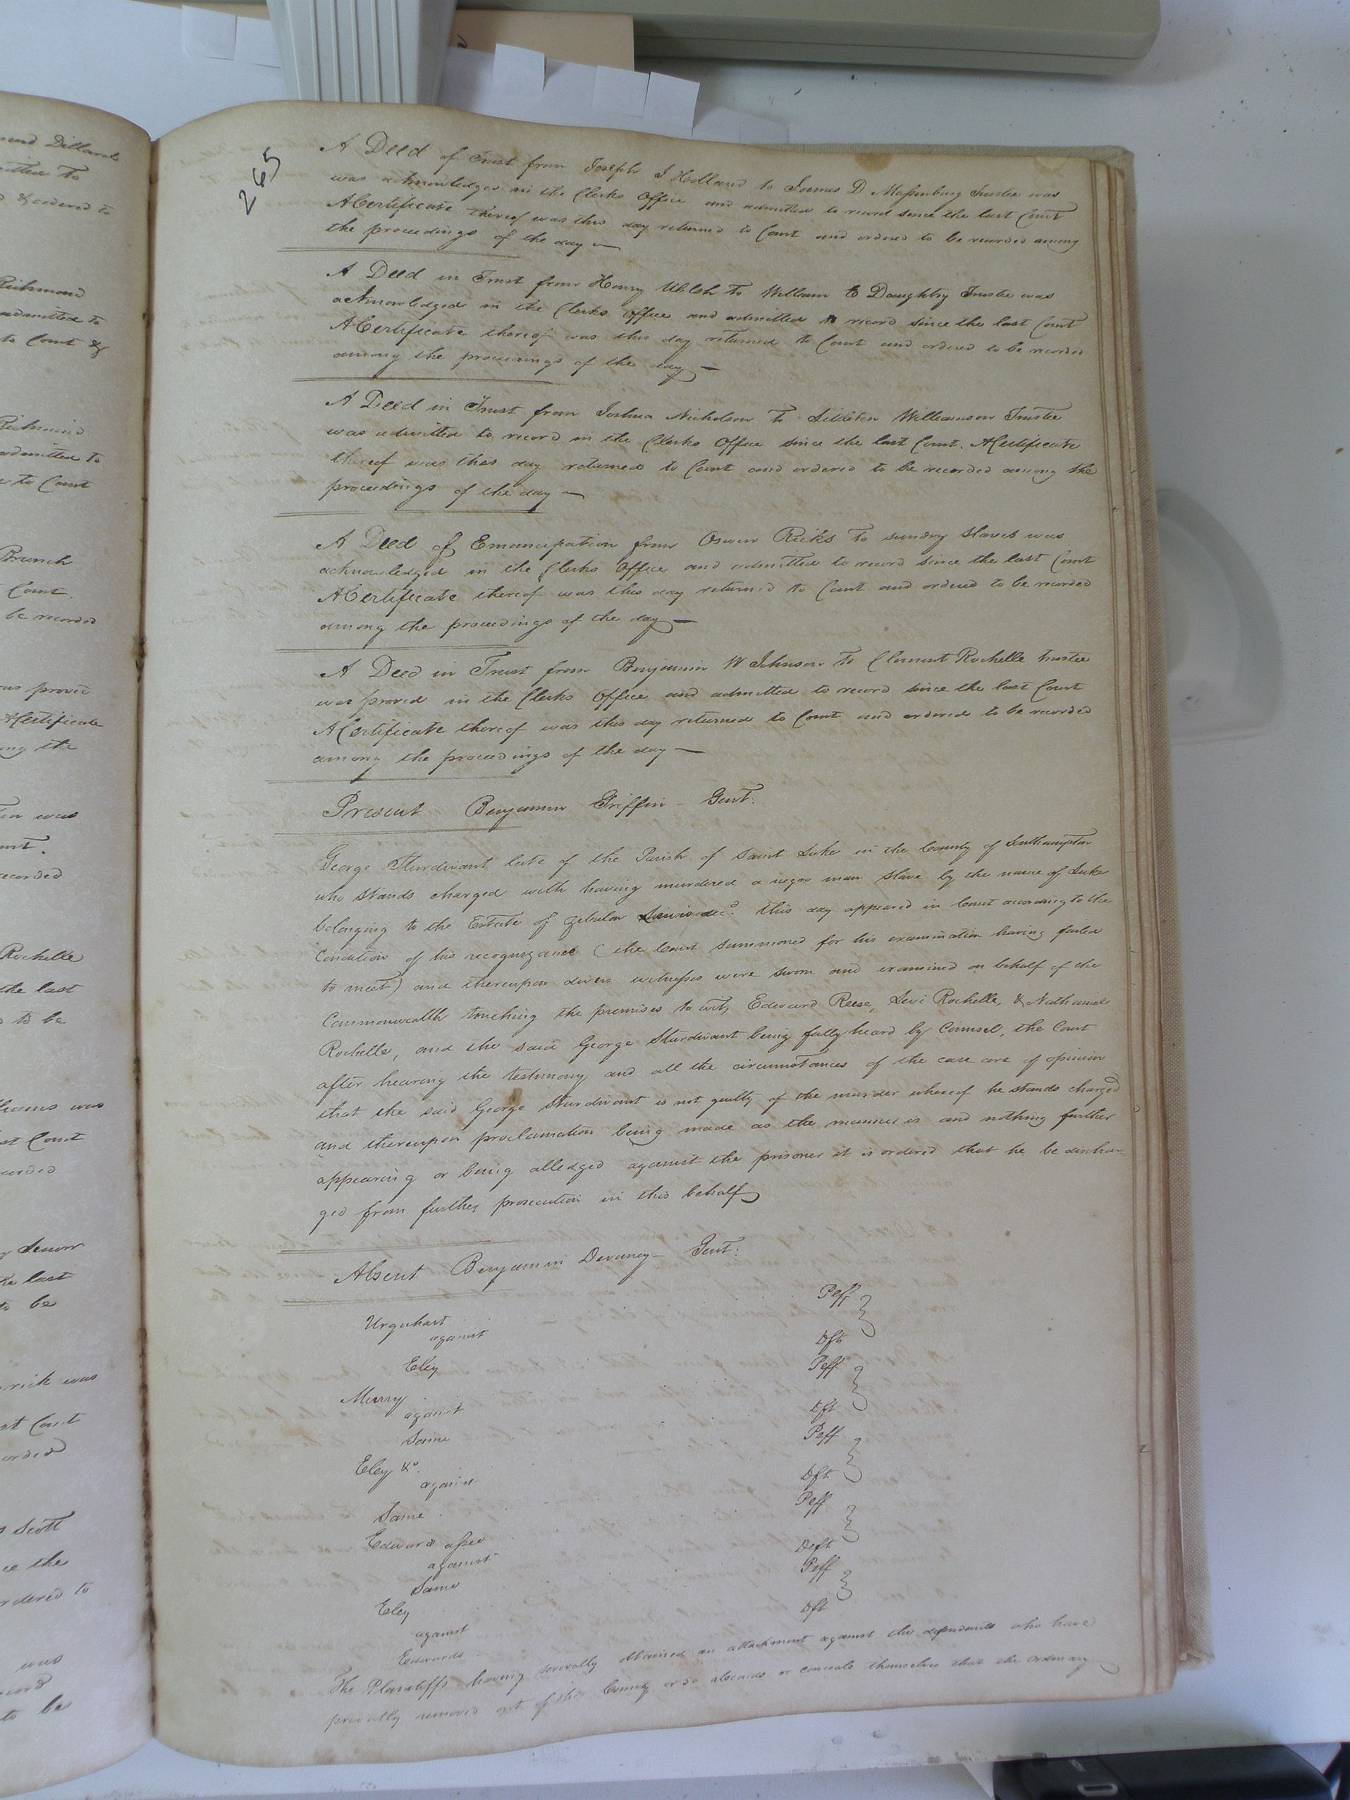 265
A Deed of Trust from Joseph J Holland to James D Massenburg Trustee was
was acknowledged in the Clerks Office and admitted to record since the last Court
A Certificate thereof was this day returned to Court and ordered to be recorded among
the proceedings of the day —
A Deed in Trust from Henry Welsh to William E Daughtry Trustee was
acknowledged in the Clerks Office and admitted to record since the last Court
A Certificate thereof was this day returned to Court and ordered to be recorded
among the proceedings of the day —
A Deed in Trust from Joshua Nicholson to Littleton Williamson Trustee
was admitted to record in the Clerks Office since the last Court. A Certificate
thereof was this day returned to Court and ordered to be recorded among the
proceedings of the day —
A Deed of Emancipation from Oswin Ricks to sundry slaves was
acknowledged in the Clerks Office and admitted to record since the last Court
A Certificate thereof was this day returned to Court and ordered to be recorded
among the proceedings of the day —
A Deed in Trust from Benjamin W Johnson to Clement Rochelle trustee
was proved in the Clerks Office and admitted to record since the last Court
A Certificate thereof was this day returned to Court and ordered to be recorded
among the proceedings of the day —
Present Benjamin Griffin - Gent.
George Sturdivant late of the Parish of Saint Luke in the County of Southampton
who stands charged with having murdered a negro man slave by the name of Luke
belonging to the Estate of Zebulon Lewis decd. this day appeared in Court according to the
Condition of his recognizance (the Court summoned for his examination having failed
to meet) and thereupon divers witnesses were sworn and examined on behalf of the
Commonwealth touching the premises to wit, Edward Reese, Levi Rochelle, & Nathaniel
Rochelle, and the said George Sturdivant being fully heard by Counsel, the Court
after hearing the testimony and all the circumstances of the case are of opinion
that the said George Sturdivant is not guilty of the murder whereof he stands charged
and thereupon proclamation being made as the manner is and nothing further
appearing or being alledged against the prisoner it is ordered that he be dischar
ged from further prosecution in this behalf
Absent Benjamin Devaney - Gent:
Urquhart Peff
against
Eley Dft
Murry Peff
against
Same Dft
Eley &c. Peff
against
Same Dft
Edwards assee Peff
against
Same Deft
Eley Peff
against
Edwards Dft
The Plaintiffs having severally obtained an attachment against the defendants who have
privately removed out of this County or so absconds or conceals themselves that the ordinary